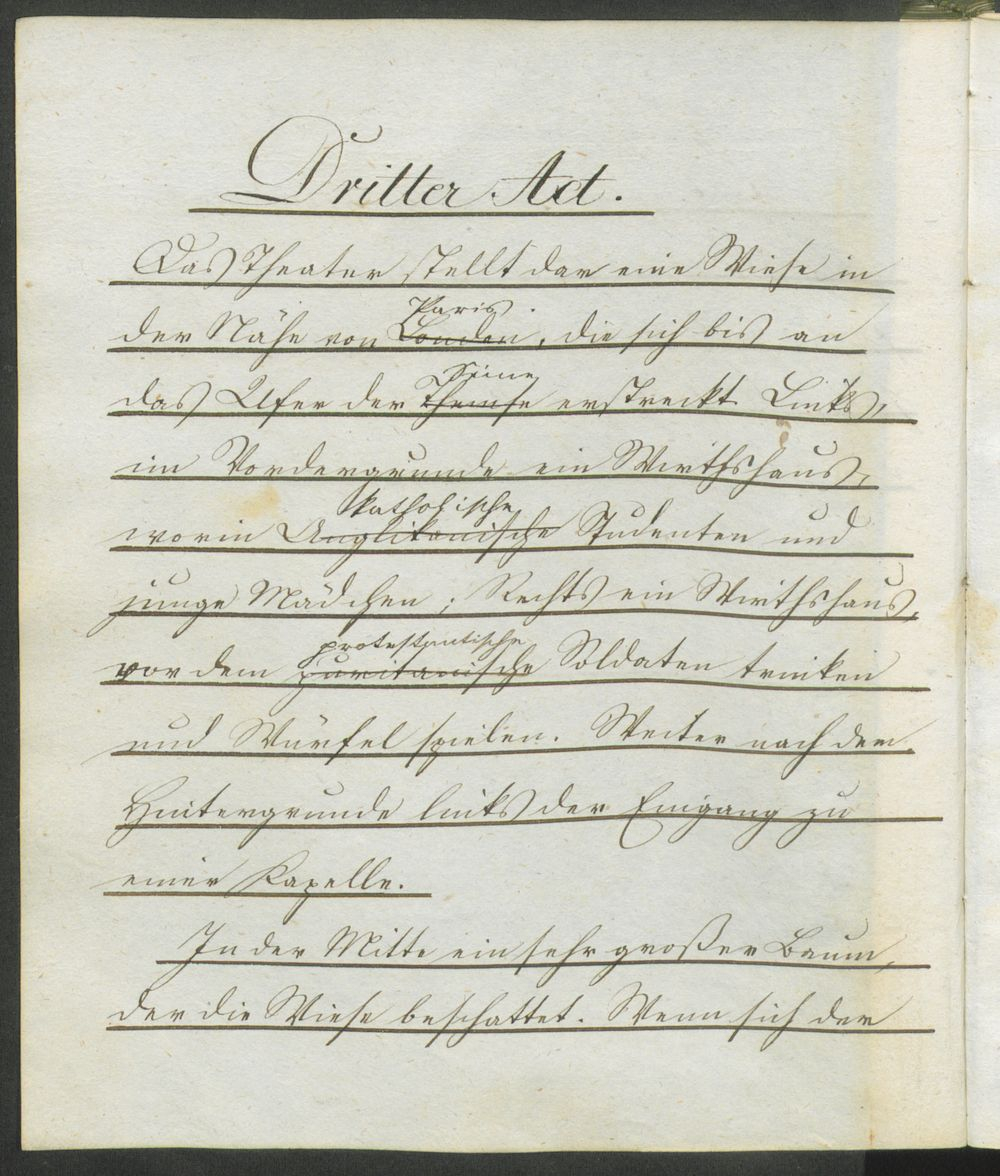 Dritter Act.
Das Theater stellt dar eine Wiese in
Paris
der Nähe von London, die sich bis an
Seine
das Ufer der Themse erstreckt. Links,
im Vordergrunde ein Wirthshaus,
katholische
worin Anglikanische Studenten und
junge Mädchen; Rechts ein Wirthshaus,
protestantische
vor dem puritanische Soldaten trinken
und Würfel spielen. Weiter nach dem
Hintergrunde links der Eingang zu
einer Kapelle.
In der Mitte ein sehr großer Baum,
der die Wiese beschattet. Wenn sich der